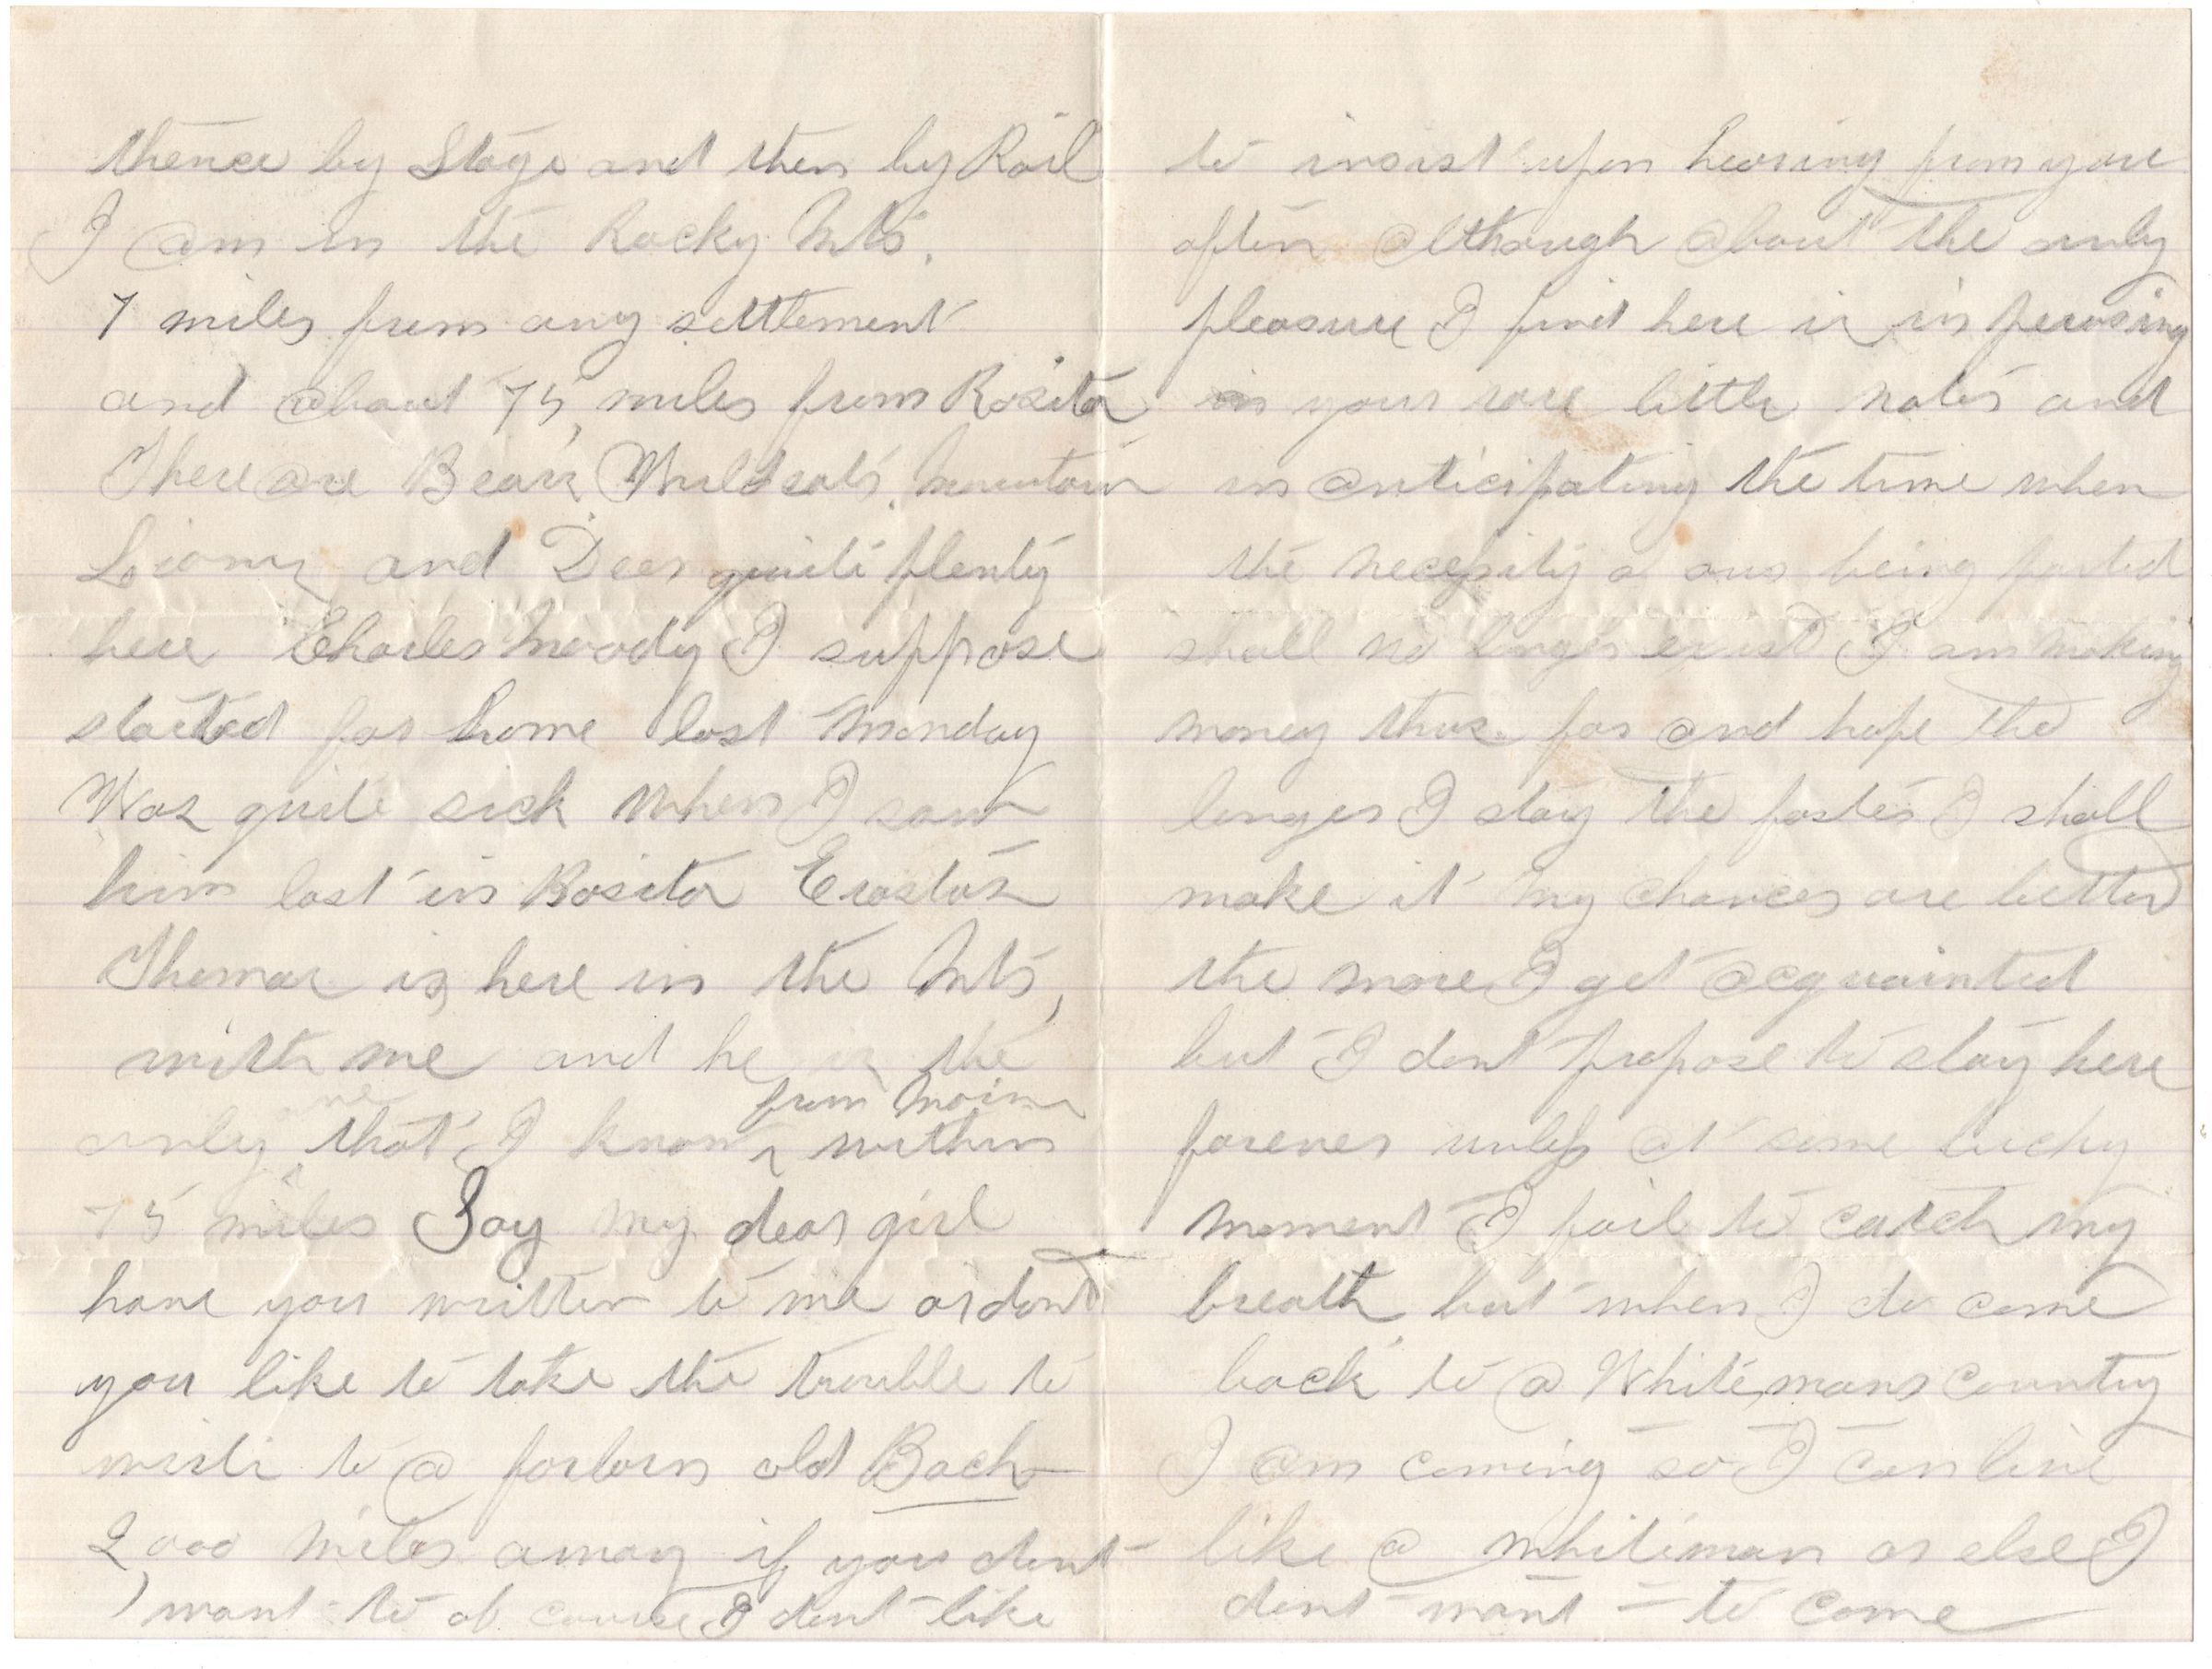 thence by Stage and then by Rail
I am in the Rocky Mts.
7 miles from any settlement
and about 75, miles from Rosita
There are Bears, Wildcats, mountain
Lions and Deer quite plenty
here Charles Moody I suppose
started for home last Monday
Was quite sick when I saw
him last in Rosita Erastus
Thomas is here in the Mts,
with me and he is the
only one that I know from Maine within
75 miles Say my dear girl
have you written to me or dont
you like to take the trouble to
write to a forlorn old Bach
2,000 miles away if you dont
want to of course I dont like
to insist upon hearing from you
often although about the only
pleasure I find here is in perusing
in your rare little notes and
in anticipating the time when
the necessity o our being parted
shall no longer exist I am making
money thus far and hope the
longer I stay the faster I shall
make it my chances are better
the more I get acquainted
but I dont propose to stay here
forever unless at some lucky
moment I fail to catch my
breath but when I do come
back to a White mans country
I am coming so I can live
like a whiteman or else I
dont want to come